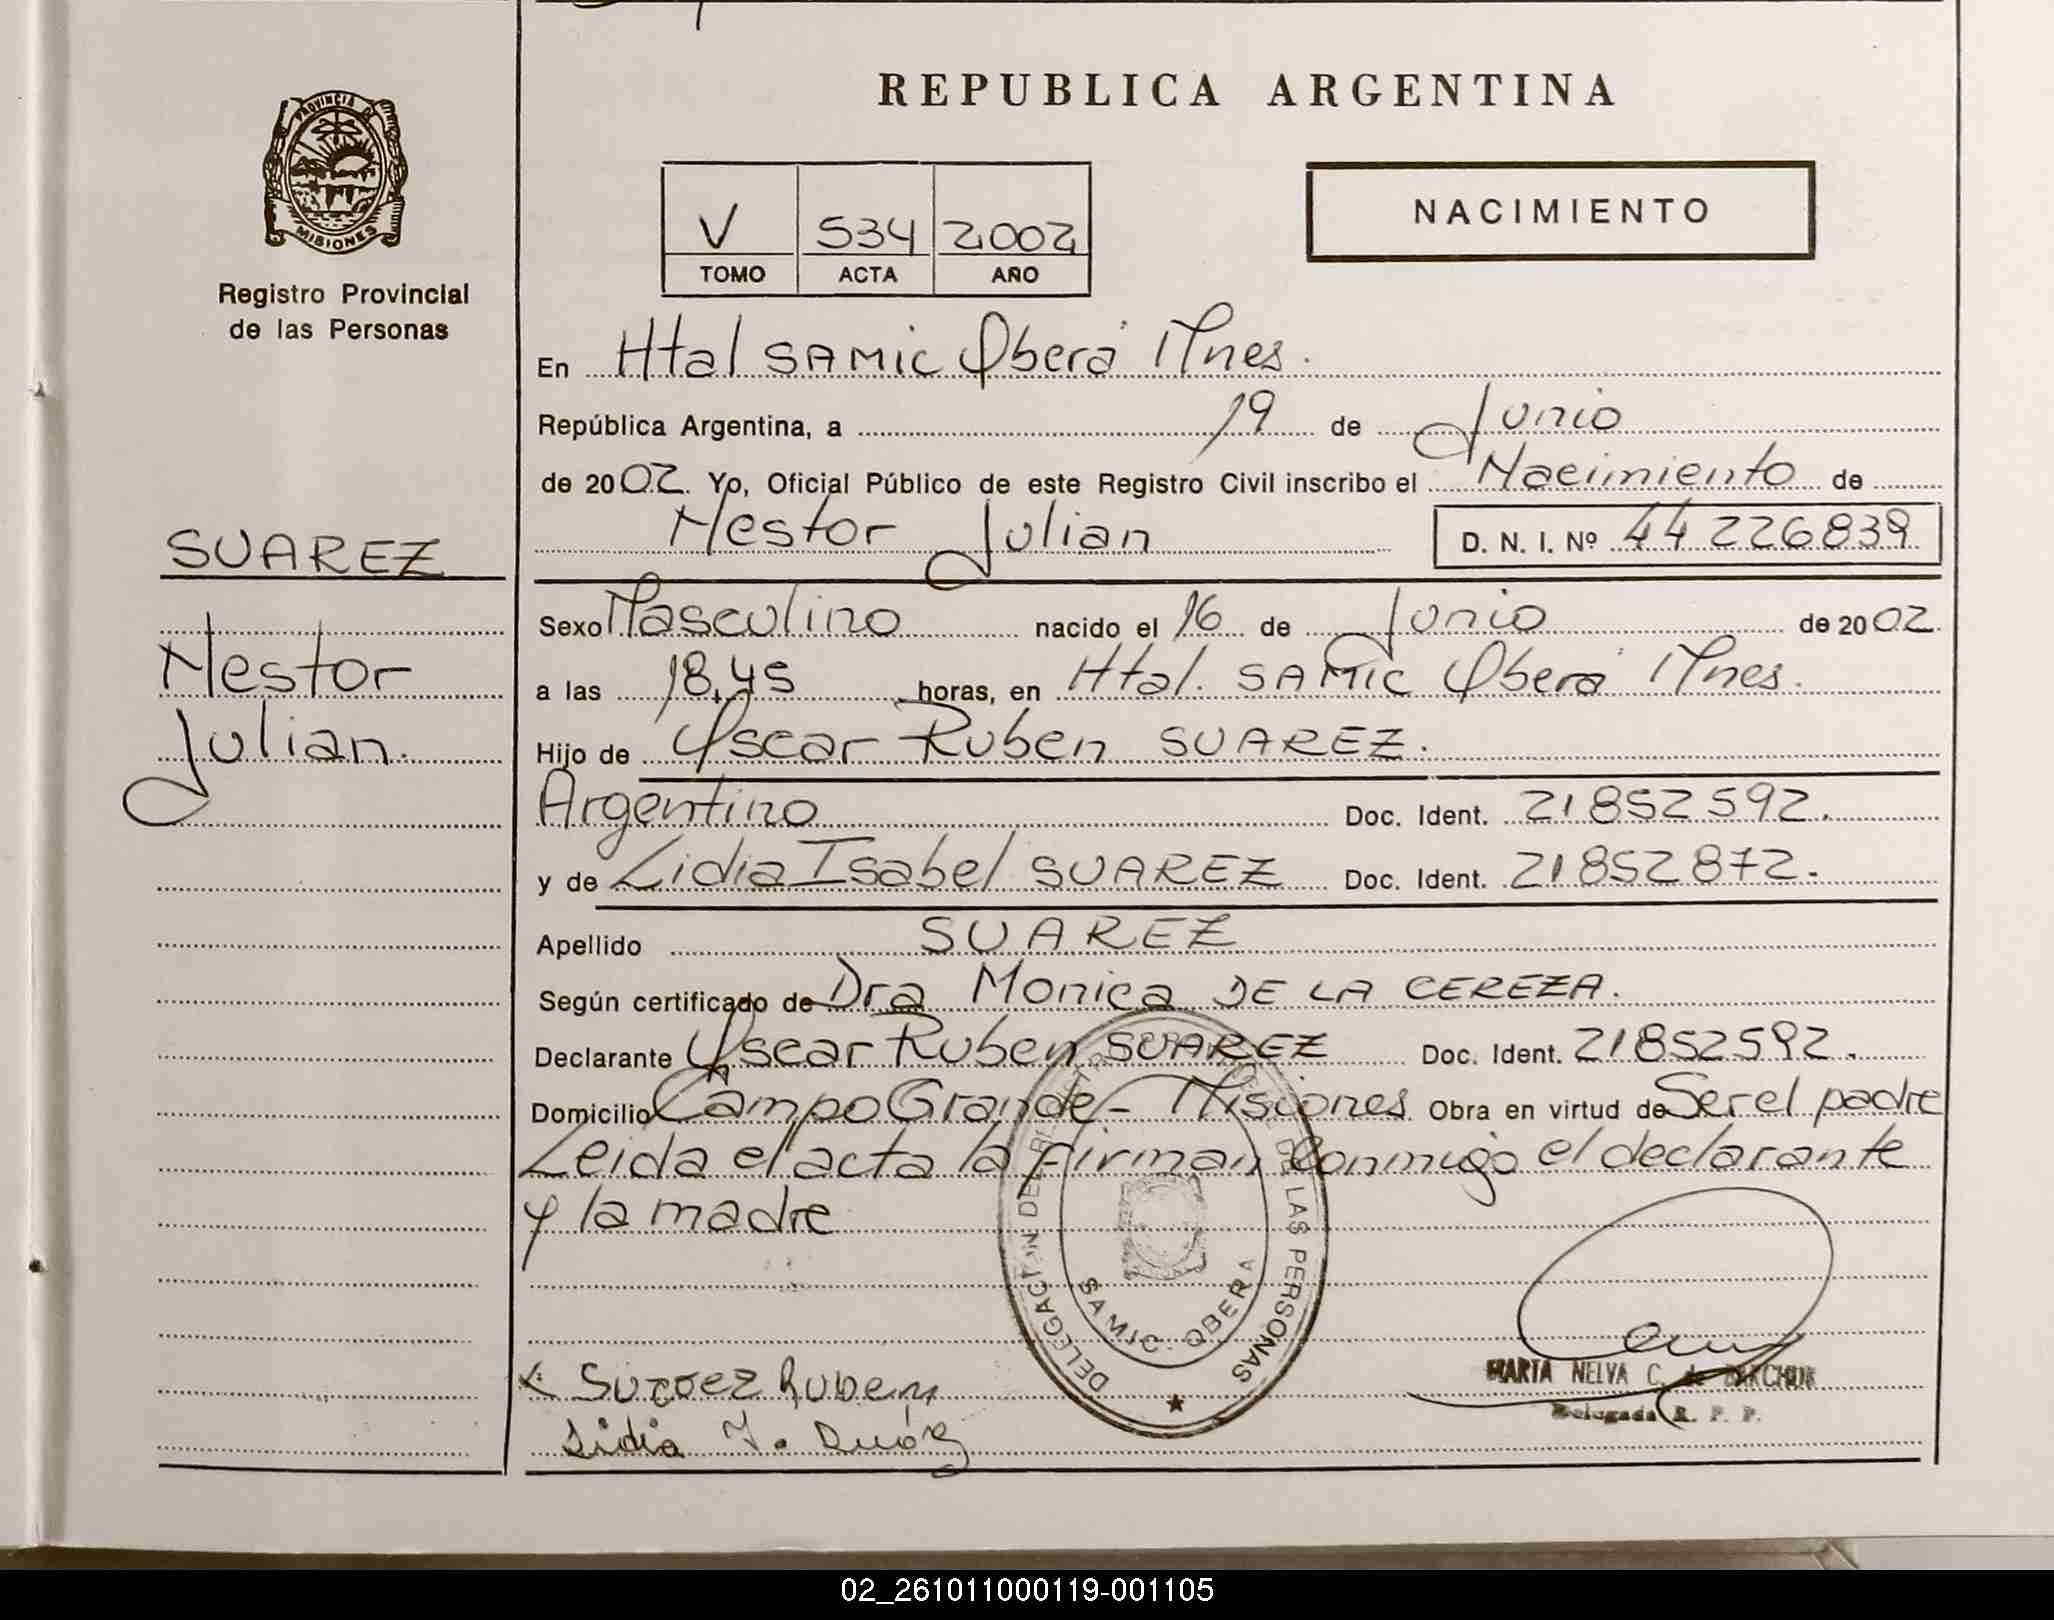 REPUBLICA ARGENTINA
PROVINCIA DE
MISIONES
Registro Provincial
de las Personas
V 534 2002
TOMO ACTA AÑO
NACIMIENTO
En Htal SAMIC Oberá Mnes.
República Argentina, a 19 de Junio
de 2002. Yo, Oficial Público de este Registro Civil inscribo el Nacimiento de
Nestor Julian D. N. I. Nº 44 226839
SUAREZ
Nestor
Julian.
Sexo Masculino nacido el 16 de Junio de 2002.
a las 18,45 horas, en Htal. SAMIC Oberá Mnes.
Hijo de Oscar Ruben SUAREZ.
Argentino Doc. Ident. 21852592.
y de Lidia Isabel SUAREZ Doc. Ident. 21852872.
Apellido SUAREZ
Según certificado de Dra Monica DE LA CEREZA.
Declarante Oscar Ruben SUAREZ Doc. Ident. 21852592.
Domicilio Campo Grande - Misiones Obra en virtud de Ser el padre
Leida el acta la firman conmigo el declarante
y la madre
DELEGACION DE LAS PERSONAS
SAMIC. OBERA
Suarez Ruben
Lidia I.
MARIA NELVA C. de
Delegada R. P. P.
02_261011000119-001105